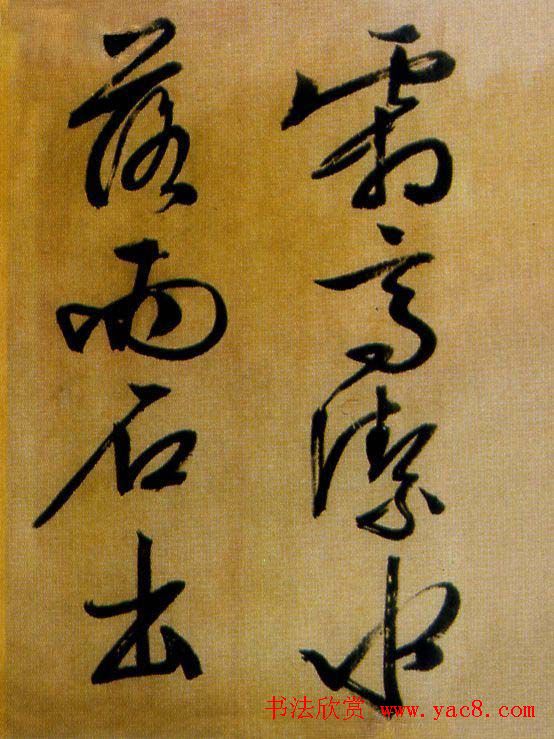 霜高潔水
落而石出
书法欣赏 www.yac8.com